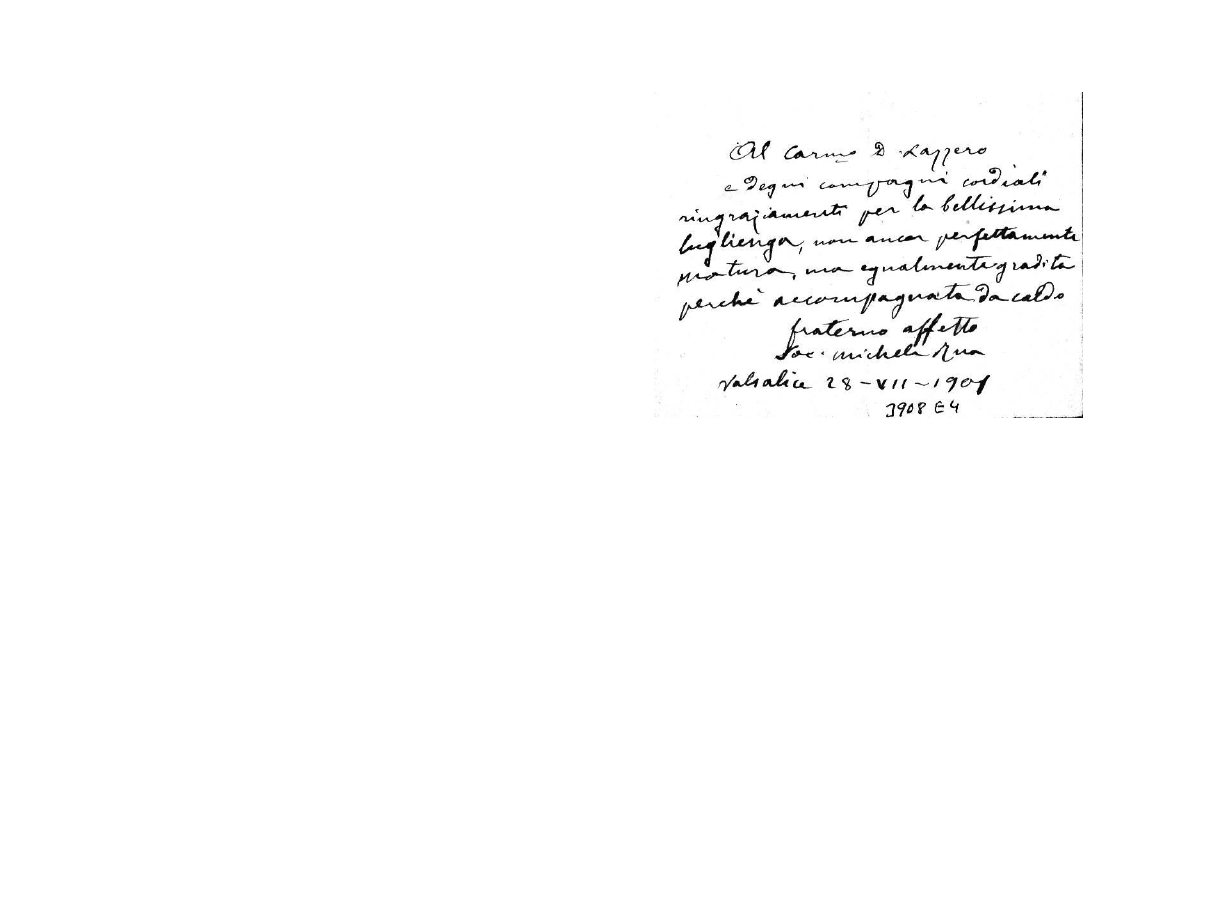 Al Carmo D. Lazzero
e degni compagni cordiali
ringraziamenti per la bellissima
luglienga, non ancor perfettamente
matura, ma egualmente gradita
perchè accompagnata da caldo
fraterno affetto
Sac. Michele Rua
Valsalice 28-VII-1901
3908 E4